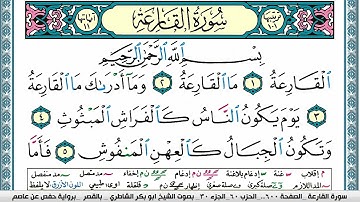 ترتيبها ١٠١
سُورَةُ القَارِعَةِ
آياتها ١١
بِسْمِ اللَّهِ الرَّحْمَٰنِ الرَّحِيمِ
الْقَارِعَةُ ١ مَا الْقَارِعَةُ ٢ وَمَا أَدْرَاكَ مَا الْقَارِعَةُ
٣ يَوْمَ يَكُونُ النَّاسُ كَالْفَرَاشِ الْمَبْثُوثِ ٤
وَتَكُونُ الْجِبَالُ كَالْعِهْنِ الْمَنْفُوشِ ٥ فَأَمَّا
سورة القارعة. الصفحة ٦٠٠. الحزب ٦٠ الجزء ٣٠ بصوت الشيخ أبو بكر الشاطري بالقصر برواية حفص عن عاصم